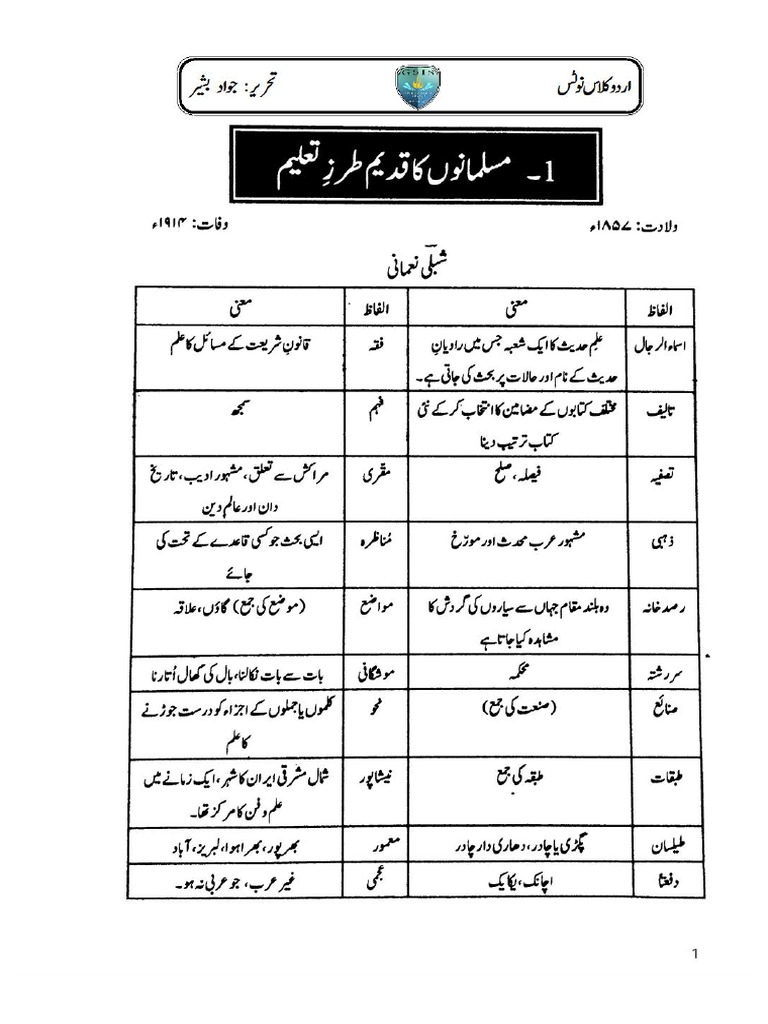 اردو کلاس نوٹس GSIS تحریر: جواد بشیر
1۔ مسلمانوں کا قدیم طرزِ تعلیم
ولادت: ۱۸۵۷ء وفات: ۱۹۱۴ء
شبلی نعمانی
الفاظ معنی الفاظ معنی
اسماء الرجال علمِ حدیث کا ایک شعبہ جس میں راویانِ فقہ قانونِ شریعت کے مسائل کا علم
حدیث کے نام اور حالات پر بحث کی جاتی ہے۔
تالیف مختلف کتابوں کے مضامین کا انتخاب کر کے نئی فہم سمجھ
کتاب ترتیب دینا
تصفیہ فیصلہ، صلح مقّری مراکش سے تعلق، مشہور ادیب، تاریخ
دان اور عالم دین
ذہبی مشہور عرب محدث اور مورّخ مُناظرہ ایسی بحث جو کسی قاعدے کے تحت کی
جائے
رصد خانہ وہ بلند مقام جہاں سے سیاروں کی گردش کا مواضع (موضع کی جمع) گاؤں، علاقہ
مشاہدہ کیا جاتا ہے
سررشتہ محکمہ موشگافی بات سے بات نکالنا، بال کی کھال اُتارنا
صنائع (صنعت کی جمع) نحو کلموں یا جملوں کے اجزاء کو درست جوڑنے
کا علم
طبقات طبقہ کی جمع نیشاپور شمال مشرقی ایران کا شہر، ایک زمانے میں
علم و فن کا مرکز تھا۔
طیلسان پگڑی یا چادر، دھاری دار چادر معمور بھرپور، بھرا ہوا، لبریز، آباد
دفعتاً اچانک، یکایک عجمی غیر عرب، جو عربی نہ ہو۔
1